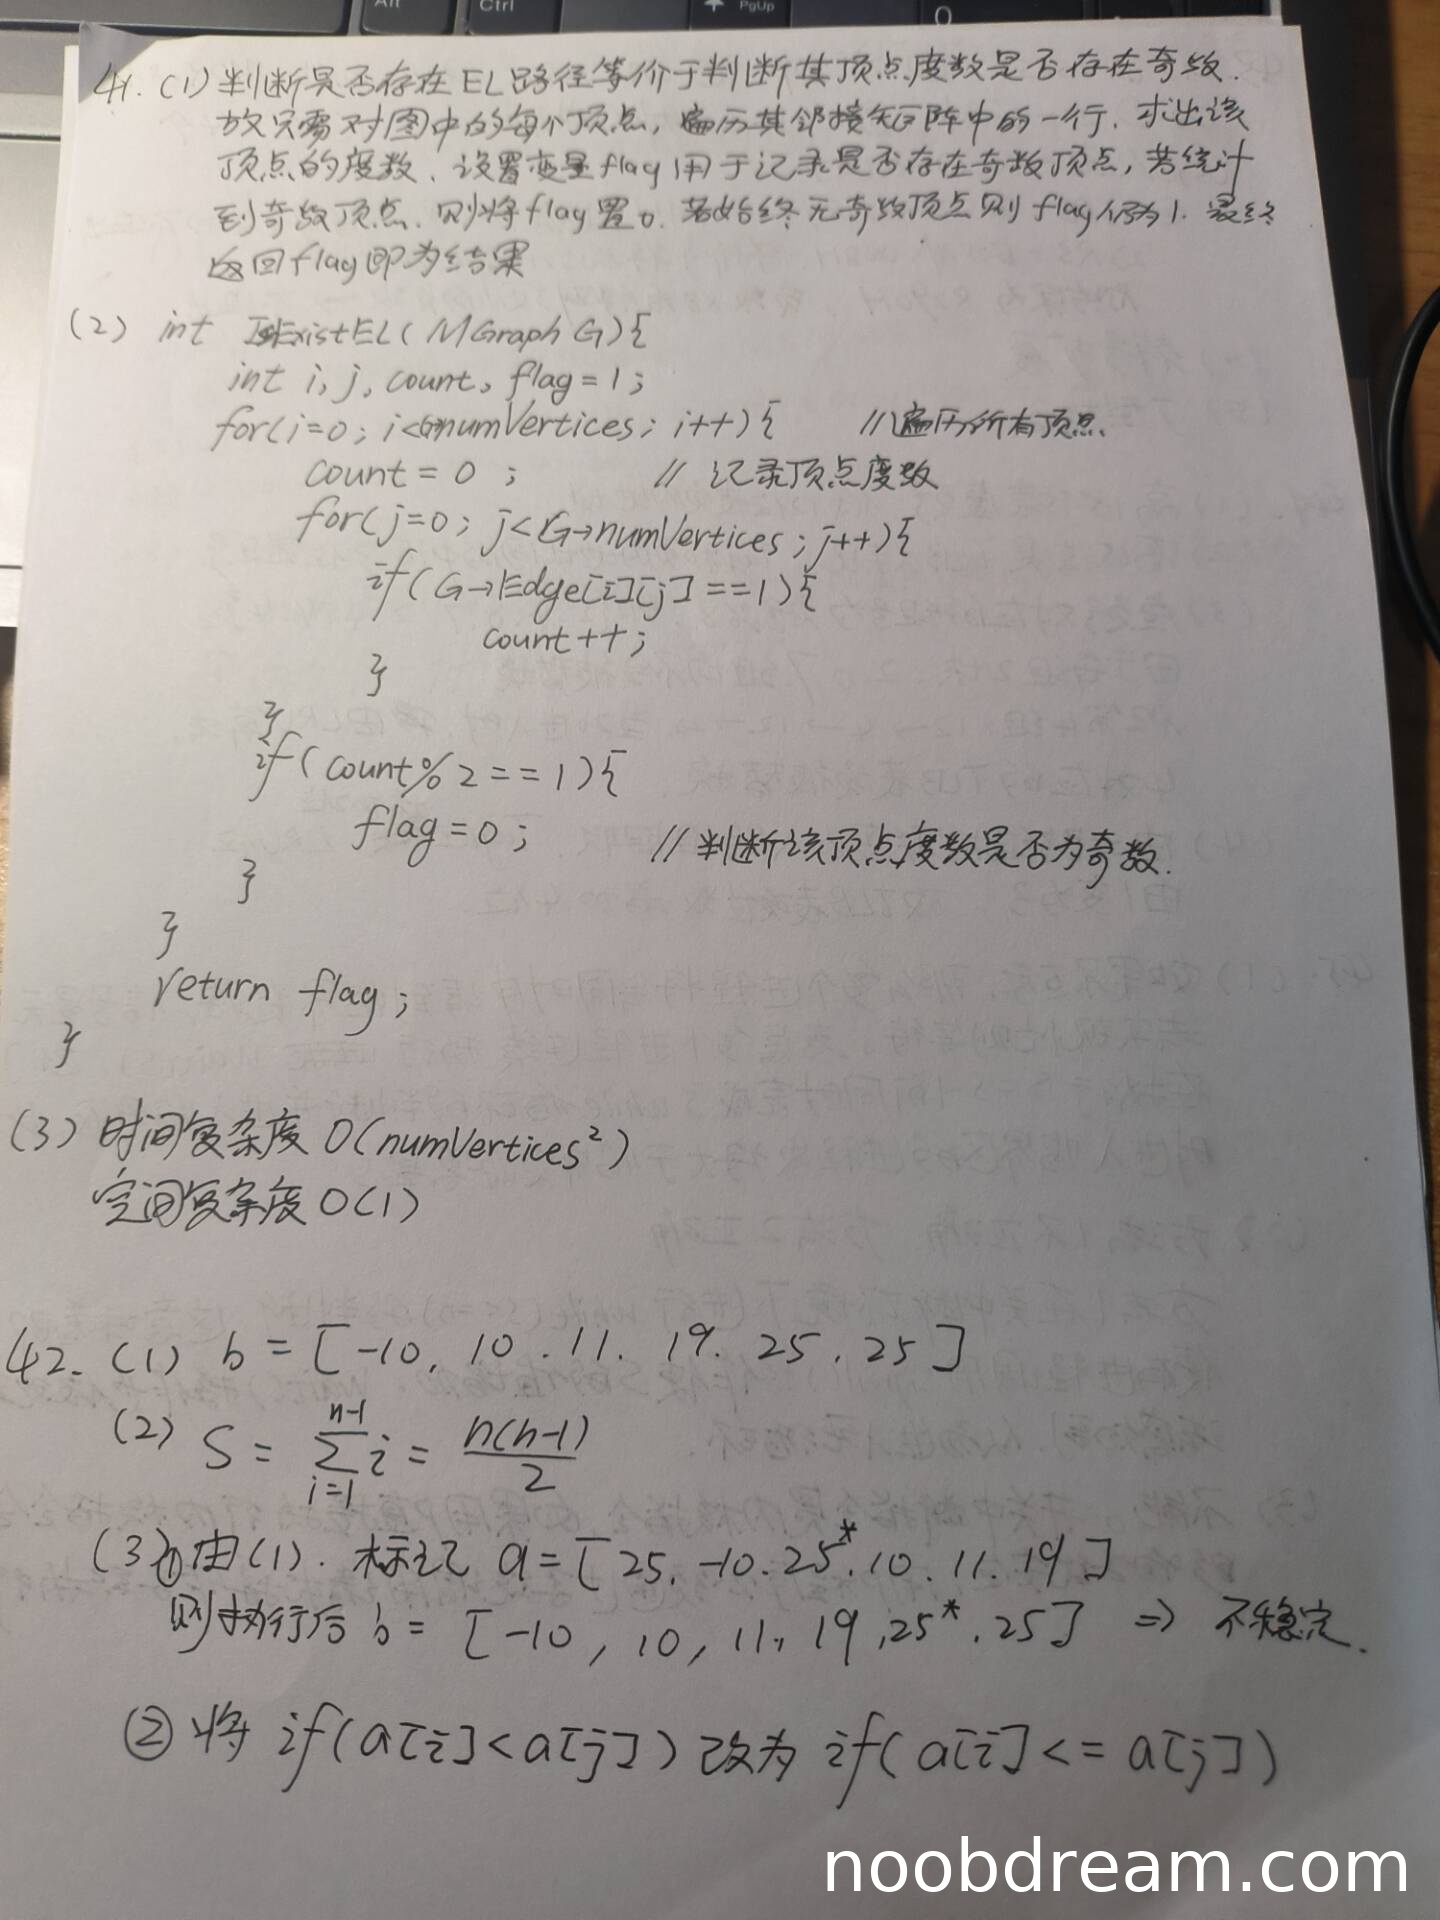 Alt
Ctrl
PgUp
41. (1) 判断是否存在EL路径等价于判断其顶点度数是否存在奇数.
故只需对图中的每个顶点, 遍历其邻接矩阵中的一行. 求出该
顶点的度数、设置变量flag用于记录是否存在奇数顶点, 若统计
到奇数顶点. 则将flag置0. 若始终无奇数顶点则 flag仍为1. 最终
返回flag即为结果
(2) int IsExistEL(MGraph G){
int i, j, count, flag=1;
for(i=0; i<G→numVertices; i++){ //遍历所有顶点.
count = 0 ; // 记录顶点度数
for(j=0; j<G→numVertices; j++){
if(G→Edge[i][j]==1){
count++;
}
}
if(count%2==1){
flag=0; // 判断该顶点度数是否为奇数.
}
}
return flag;
}
(3) 时间复杂度 O(numVertices²)
空间复杂度 O(1)
42. (1) b = [-10, 10. 11. 19. 25. 25]
(2) S = n-1∑i=1 i = n(n-1)/2
(3)①由(1). 标记 a=[25. -10. 25*. 10. 11. 19]
则执行后 b= [-10, 10, 11, 19, 25*. 25] => 不稳定.
② 将 if(a[i]<a[j]) 改为 if(a[i]<=a[j])
noobdream.com